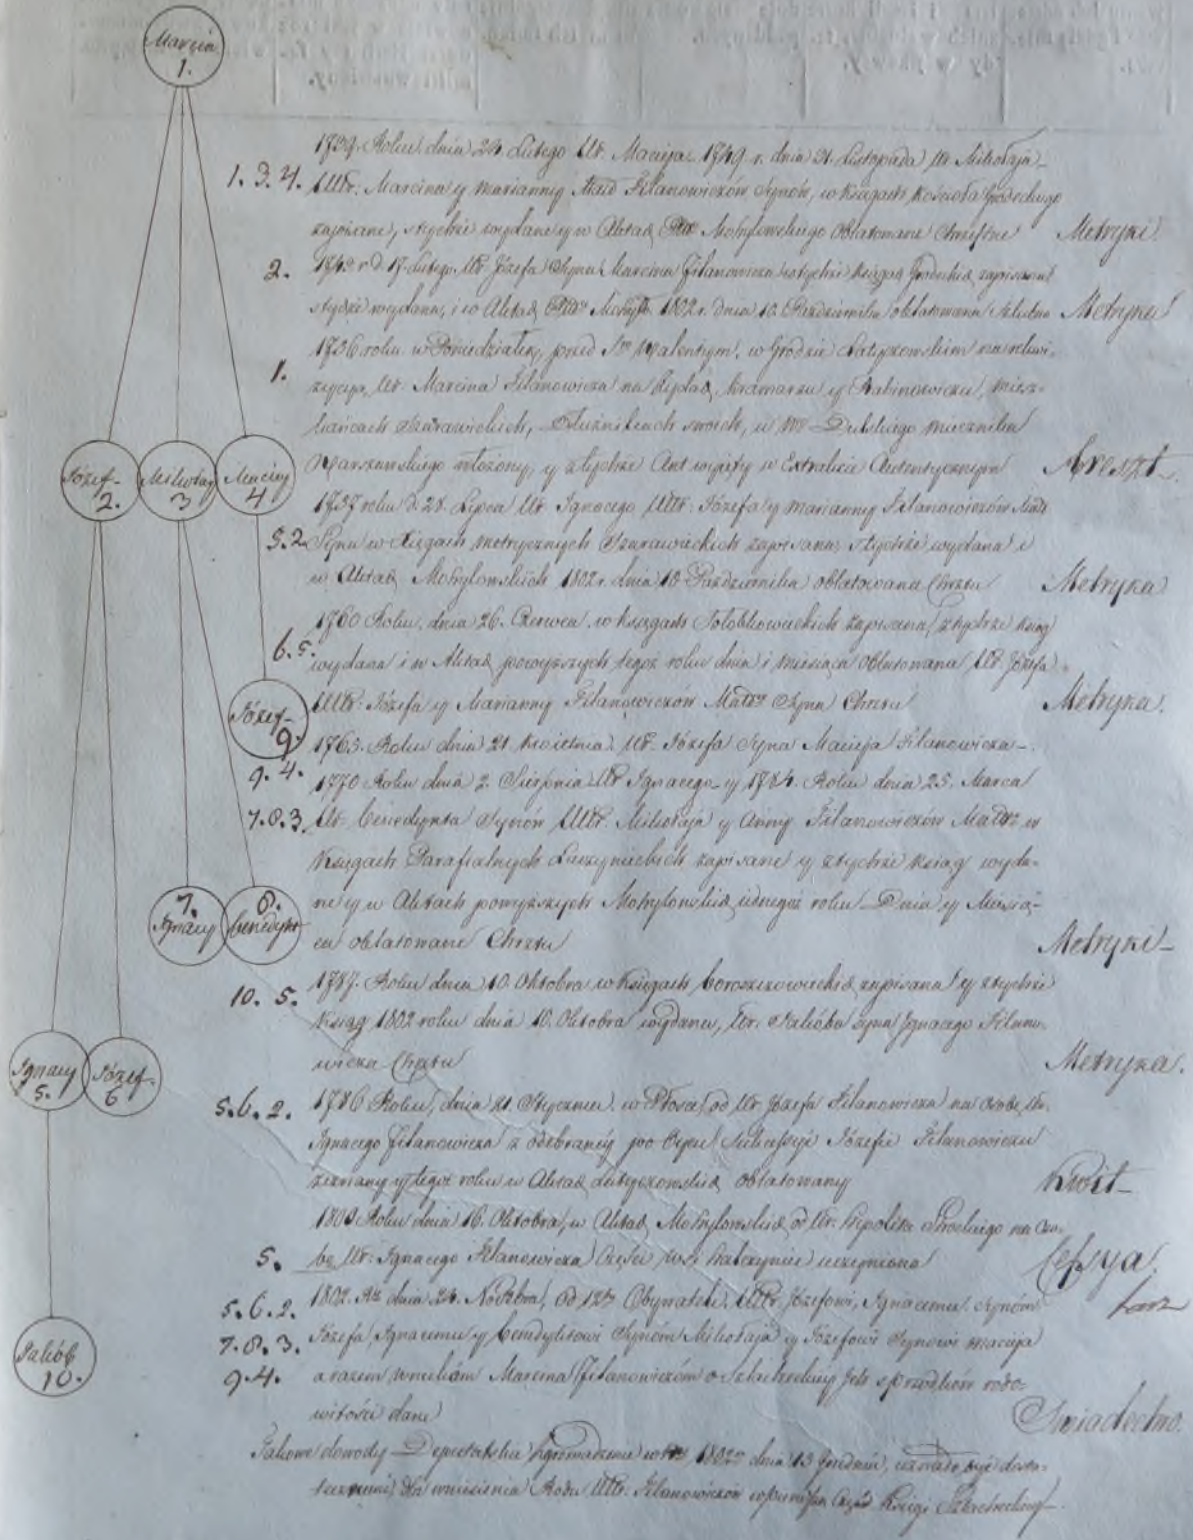 Marcin
1.
1739. Roku dnia 24. Lutego Ur. Macieja 1749 r. dnia 21. Listopada Ur Mikołaja
1. 3. 4. UUr. Marcina y Marianny Filanowiczów Synów, w Księgach Kościoła Grodeckiego
zapisane, stychże wydane y w Aktach Mohylowskiego Oblatowane Chrzestne Metryki.
2. r. D. 17. Lutego Ur. Józefa Syna Marcina Filanowicza stychże Ksiąg Grodeckich zapisana
stychże wydana, i w Aktach 1802 r. dnia 10. Października oblatowana Szlubna Metryka
1736 roku w Poniedziałek, przed Stm Walentym, w Grodzie Latyczowskim na rekwi-
1. zycyą, Ur. Marcina Filanowicza na kramarzu y Rabinowiczu, miesz-
czańcach Szarawieckich, Dłużnikach swoich, u Dubskiego miecznika
Warszawskiego włożony, y stychże Akt wyjęty w Extrakcie Autentycznym Areszt.
Józef
2.
Mikołay
3
Maciey
4
1737 roku d. 28. Lipca Ur. Ignacego UUr. Józefa y Marianny Filanowiczów
5. 2. Syna w Xięgach metrycznych Szarawieckich zapisana, stychże wydana i
w Aktach Mohylowskich 1802 r. dnia 18 Października oblatowana Chrztu Metryka
1760 Roku, dnia 26. Czerwca w Księgach zapisana, z tychże ksiąg
6. 5. wydana i w Aktach powyższych tegoż roku dnia i miesiąca oblatowana Ur. Józefa
UUr. Józefa y Marianny Filanowiczów Syna Chrztu Metryka.
Józef
9.
1763. Roku dnia 21. Kwietnia Ur. Józefa Syna Macieja Filanowicza
9. 4. 1770 Roku dnia 2. Sierpnia Ur Ignacego y 1784. Roku dnia 25. Marca
7. 8. 3. Ur. Benedykta Synów UUr. Mikołaja y Anny Filanowiczów w
Księgach Parafialnych zapisane y z tychże ksiąg wyda-
ne y w Aktach powyższych Mohylowskich jednegoż roku Dnia y Miesią-
ca oblatowane Chrztu Metryki
7.
Ignacy
8.
Benedykt
10. 5. 1787. Roku dnia 10. Oktobra w Księgach zapisana y z tychże
Ksiąg 1802 roku dnia 10. Oktobra wydana, Ur. Jakóba syna Ignacego Filano-
wicza Chrztu Metryka.
Ignacy
5.
Józef
6
5. 6. 2. 1786 Roku, dnia 21. Stycznia od Ur Józefa Filanowicza na Osobę Ur.
Ignacego Filanowicza z odebraney po Oycu Sukcessyi Józefie Filanowiczu
zeznany y tegoż roku w Aktach Latyczowskich oblatowany Kwit
1803 Roku dnia 16. Oktobra, w Aktach Mohylowskich od Ur. Hipolita na Oso-
5. bę Ur. Ignacego Filanowicza Części wsi uczyniona Cessya.
5. 6. 2. 1802. Ru dnia 24. od 12tu Obywateli, UUr. Józefowi, Ignacemu, Synóm
7. 8. 3. Józefa, Ignacemu y Benedyktowi Synóm Mikołaja y Józefowi Synowi Macieja
9. 4. a razem Wnukóm Marcina Filanowiczóm o Szlacheckiey Ich z przodków rodo-
witości dane Świadectwo.
Jakób
10.
Jakowe dowody Deputatska Zgromadzenie 1802 dnia 13 Grudnia, uznało być dosta-
tecznemi dla wniesienia Rodu UUr. Filanowiczów w Część Księgi Szlacheckiey